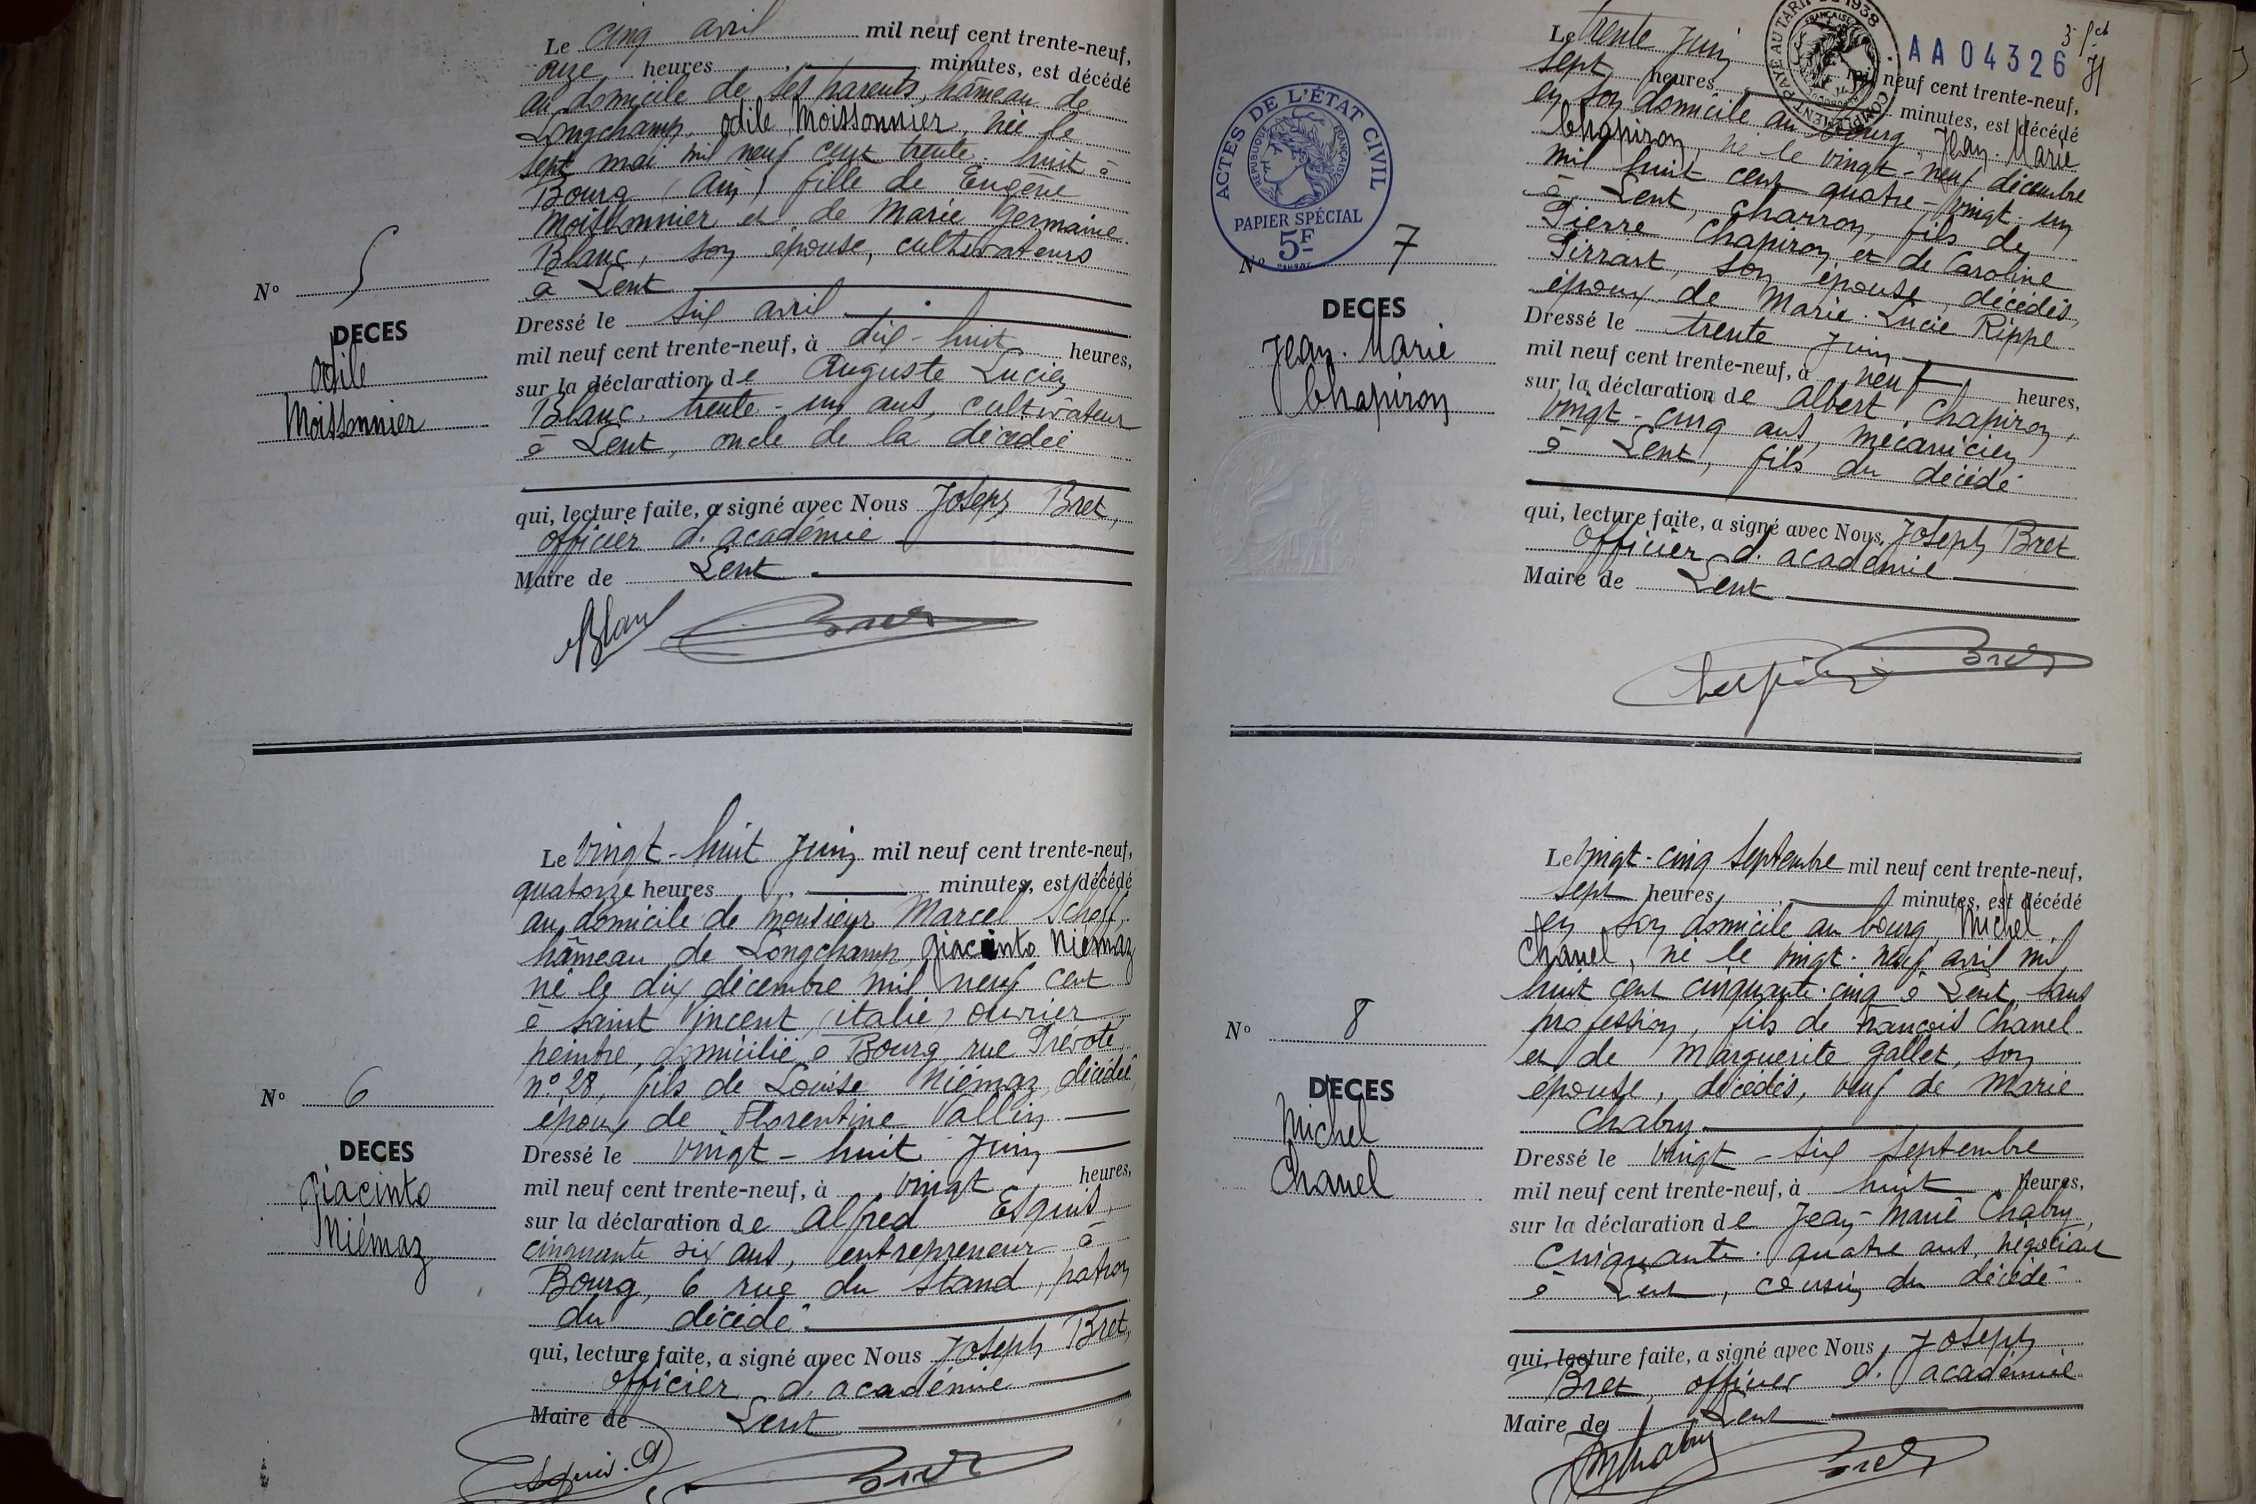 Le cinq avril mil neuf cent trente-neuf,
onze heures minutes, est décédé
au domicile de ses parents, hâmeau de
Longchamp, Odile Moissonnier, née le
sept mai mil neuf cent trente-huit à
Bourg (Ain) fille de Eugène
Moissonnier et de Marie Germaine
Blanc, son épouse, cultivateurs
à Lent
N° 5
DECES
Odile
Moissonnier
Dressé le six avril
mil neuf cent trente-neuf, à dix-huit heures,
sur la déclaration de Auguste Lucien
Blanc, trente-un ans, cultivateur
à Lent, oncle de la décédée
qui, lecture faite, a signé avec Nous Joseph Bret,
officier d'académie
Maire de Lent
Blanc Bret
Le vingt-huit juin mil neuf cent trente-neuf,
quatorze heures minutes, est décédé
au domicile de monsieur Marcel
hâmeau de Longchamp, Giacinto Niémaz
né le dix décembre mil neuf cent
à Saint Vincent (Italie) ouvrier
peintre, domicilié à Bourg, rue Prévôté,
n° 28, fils de Louise Niémaz, décédée
époux de Florentine Vallin
N° 6
DECES
Giacinto
Niémaz
Dressé le vingt-huit juin
mil neuf cent trente-neuf, à vingt heures,
sur la déclaration de Alfred Esquis,
cinquante six ans, entrepreneur à
Bourg, 6 rue du Stand, patron
du décédé.
qui, lecture faite, a signé avec Nous Joseph Bret,
officier d'académie
Maire de Lent
Esquis. A Bret
AA04326
COMPLÉMENT PAYÉ AU TARIF DE 1938
Le trente juin mil neuf cent trente-neuf,
sept heures minutes, est décédé
en son domicile au bourg, Jean-Marie
Chapiron, né le vingt-neuf décembre
mil huit cent quatre-vingt-un
à Lent, charron, fils de
Pierre Chapiron et de Caroline
Pirrart, son épouse, décédés,
époux de Marie-Lucie Rippe
ACTES DE L'ÉTAT CIVIL
RÉPUBLIQUE FRANÇAISE
PAPIER SPÉCIAL
5F
N° 7
DECES
Jean-Marie
Chapiron
Dressé le trente juin
mil neuf cent trente-neuf, à neuf heures,
sur la déclaration de Albert Chapiron,
vingt-cinq ans, mécanicien
à Lent, fils du décédé
qui, lecture faite, a signé avec Nous, Joseph Bret
Officier d'académie
Maire de Lent
Chapiron Bret
Le vingt-cinq septembre mil neuf cent trente-neuf,
sept heures, minutes, est décédé
en son domicile au bourg, Michel
Chanel, né le vingt-neuf avril mil
huit cent cinquante-cinq à Lent, sans
profession, fils de François Chanel
et de Marguerite Gallet, son
épouse, décédés, veuf de Marie
Chabry
N° 8
DECES
Michel
Chanel
Dressé le vingt-six septembre
mil neuf cent trente-neuf, à huit heures,
sur la déclaration de Jean-Marie Chabry,
cinquante-quatre ans, négociant
à Lent, cousin du décédé
qui, lecture faite, a signé avec Nous, Joseph
Bret, officier d'académie
Maire de Lent
JMChabry Bret